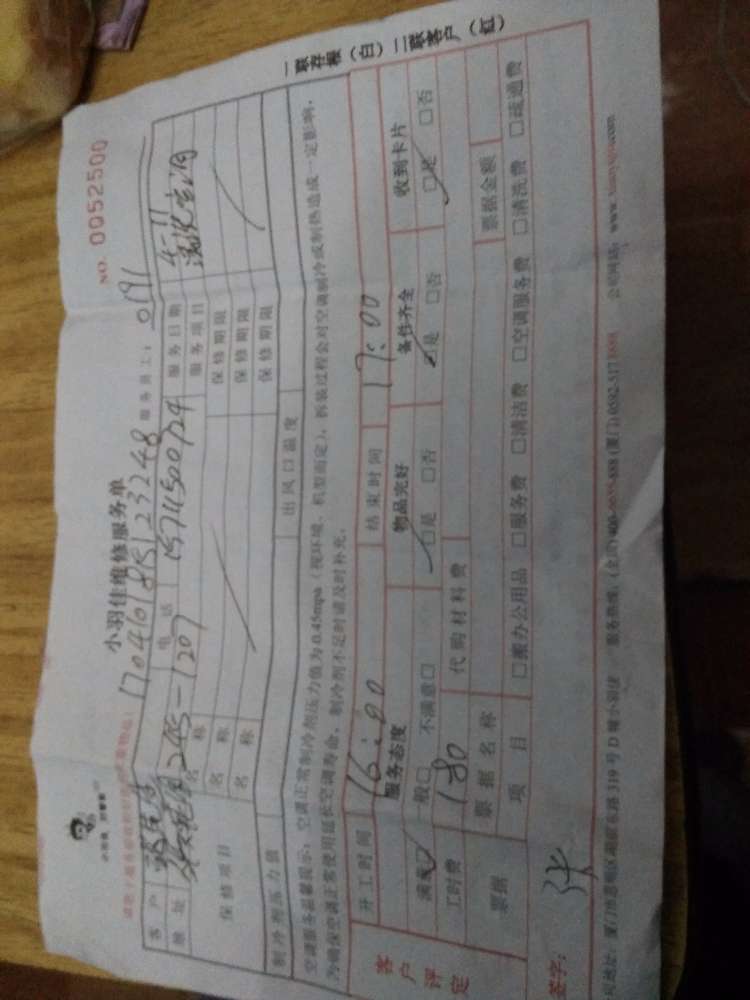 小羽佳维修服务单
NO. 0052500
17040181S123248 服务员工: 0191
客户 电话 15711500724 服务日期 4-11
地址 245-1207 服务项目 清洗空调
保修项目 名称 保修期限
名称 保修期限
名称 保修期限
制冷剂压力值 出风口温度
空调服务温馨提示: 空调正常制冷剂压力值为0.45mpa (视环境、机型而定), 拆装过程会对空调制冷或制热造成一定影响,
为确保空调正常使用延长空调寿命, 制冷剂不足时请及时补充。
开工时间 16:00 结束时间 17:00
客户评定 服务态度 物品完好 备件齐全 收到卡片
满意□ 一般□ 不满意□ □是 □否 □是 □否 □是 □否
工时费 180 代购材料费
票据 票据名称 票据金额
项目 □搬办公用品 □服务费 □清洁费 □空调服务费 □清洗费 □疏通费
签字: 张
厦门市思明区湖滨东路319号D幢小羽佳 服务热线: (厦门) 公司网站:
一联存根 (白) 二联客户 (红)